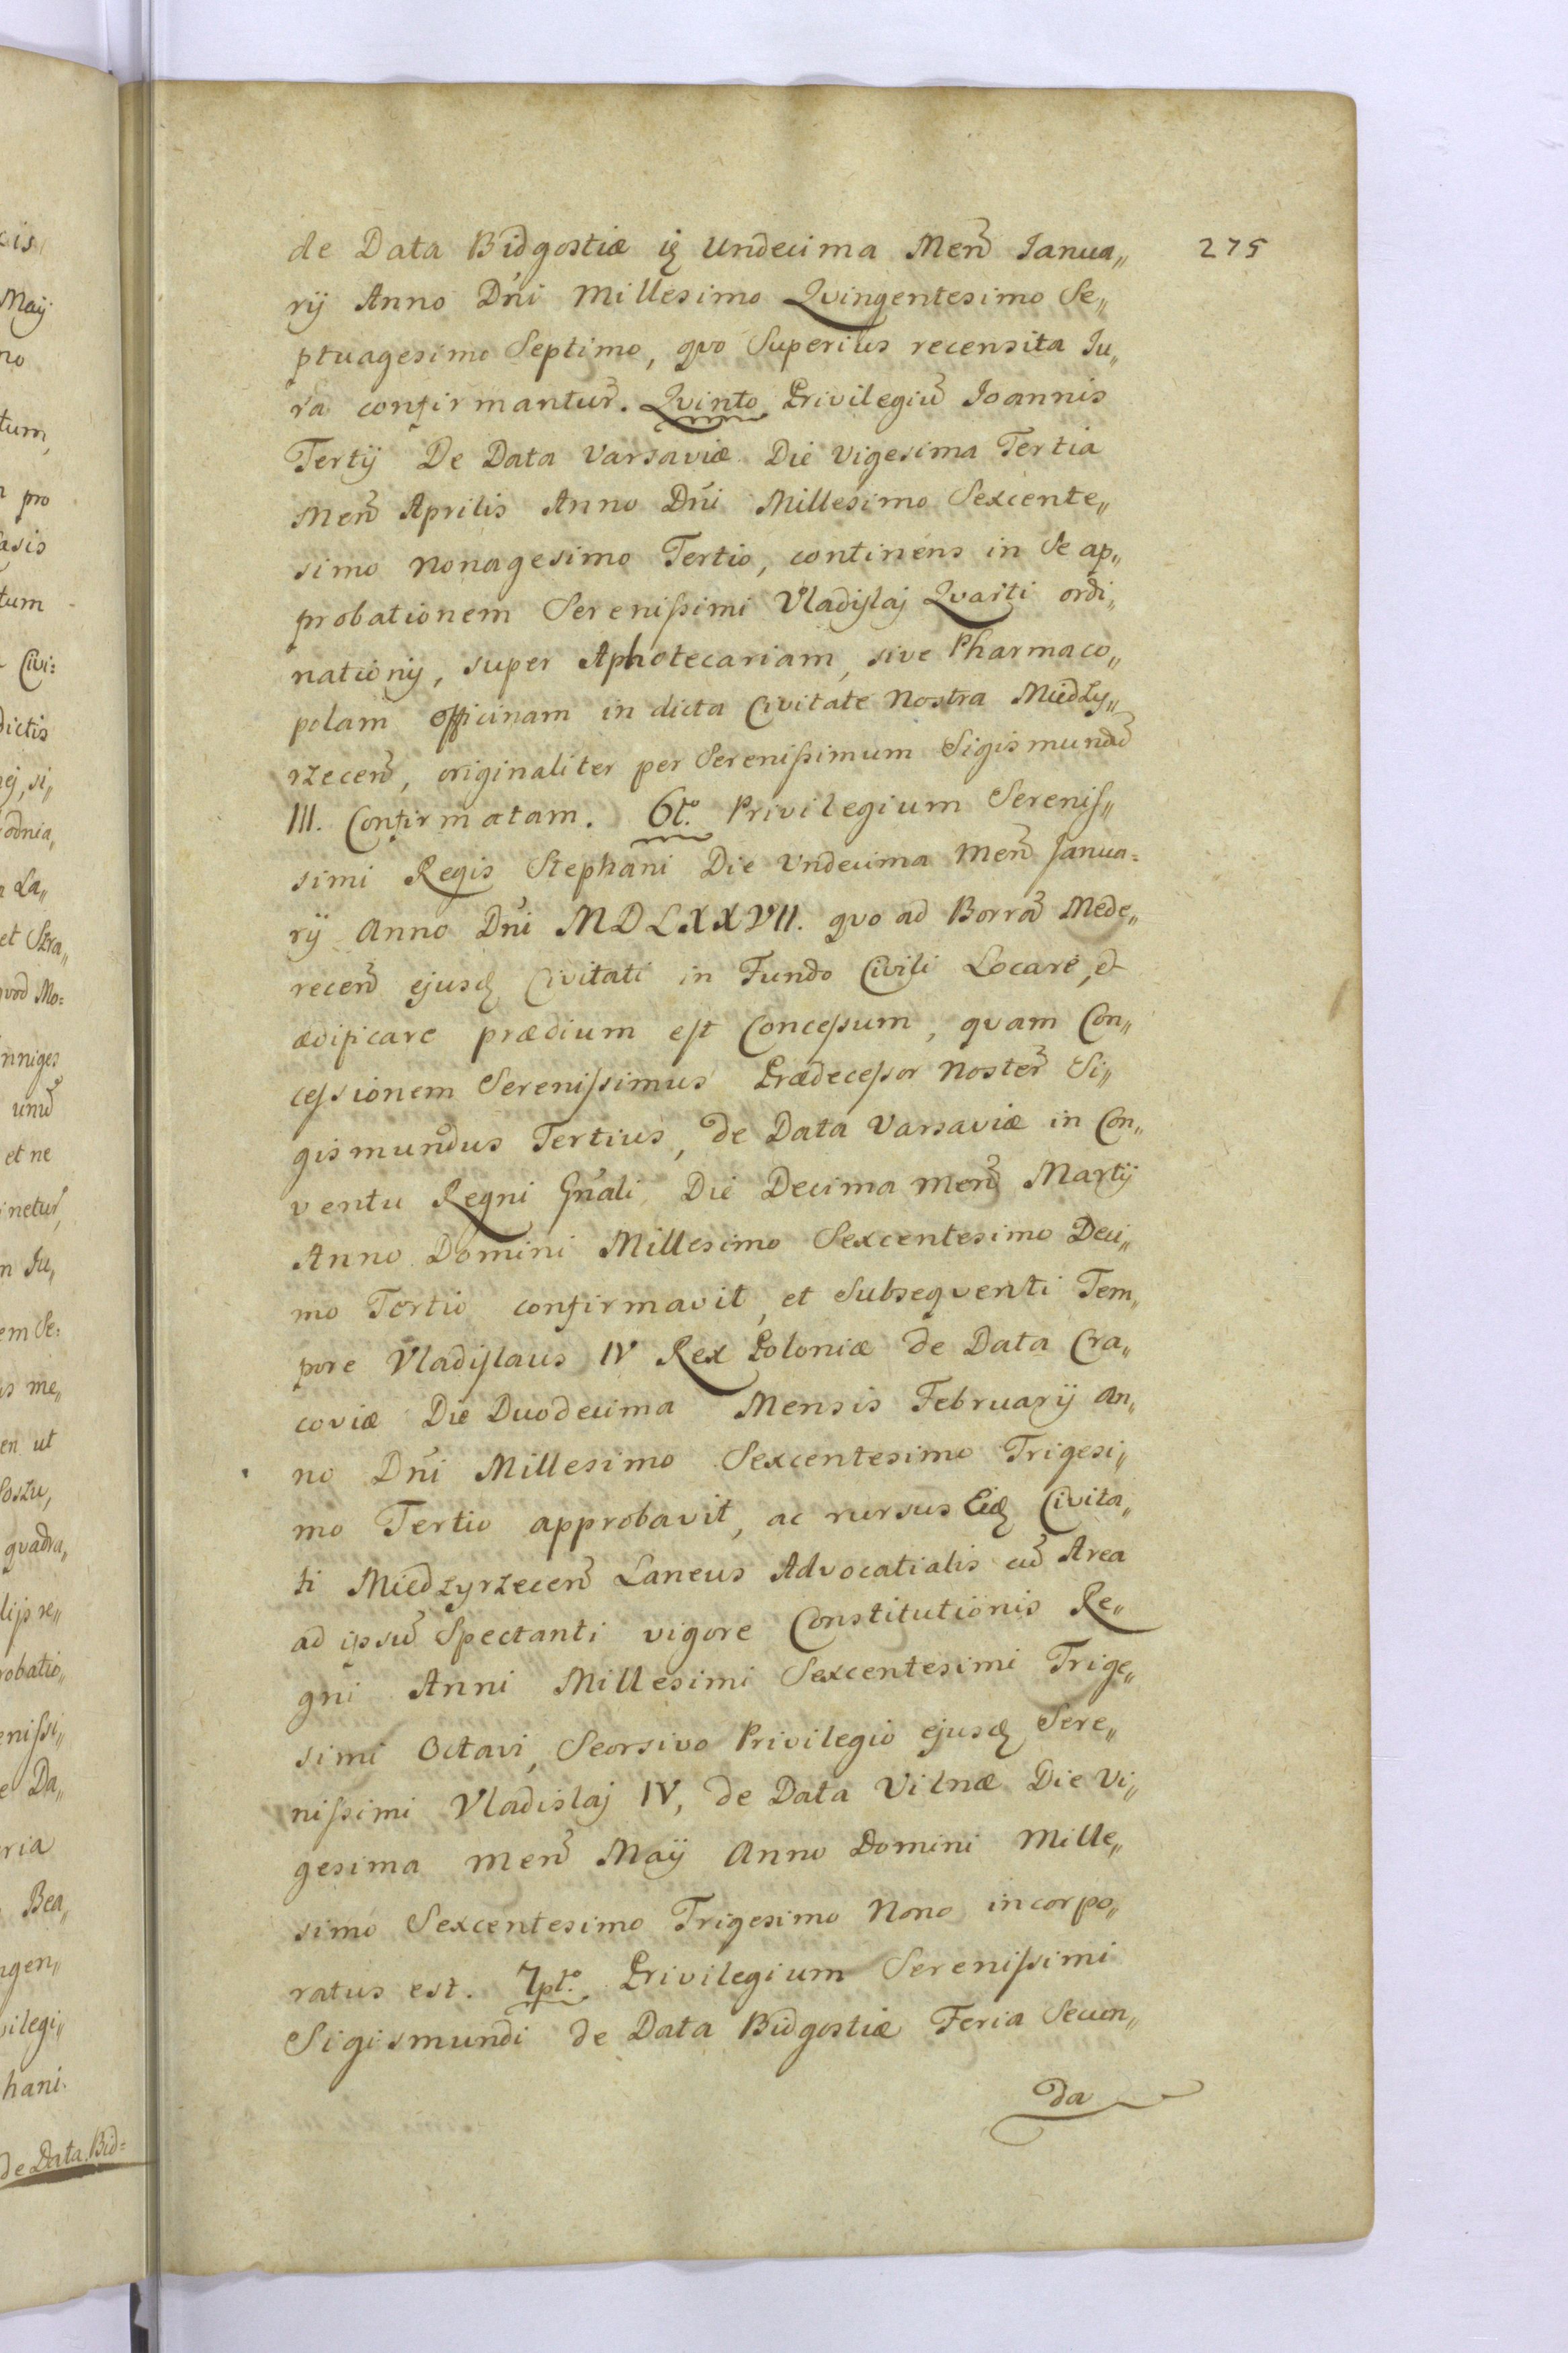 275
de Data Bidgostiæ iȩ Undecima Menῦ Janua„
rij Anno Dńi Millesimo Qvingentesimo Se„
ptuagesimo Septimo, qvo Superius recensita Iu„
ra confirmantur. Qvinto Privilegiū Joannis
Tertij De Data Varsaviæ Die Vigesima Tertia
Men̄ Aprilis Anno Dńi Millesimo Sexcente„
simo Nonagesimo Tertio, continens in Se ap„
probationem Serenißimi Vladislaj Qvarti ordi„
nationij, super Aphotecariam, sive Pharmaco„
polam officinam in dicta Civitate Nostra Miedzy„
rzecen̄, originaliter per Serenißimum Sigismundū
III. Confirmatam. 6to. Privilegium Sereniſ„
simi Regis Stephani Die Undecima Men̄ Janua=
rij Anno Dńi MDLXXVII. qvo ad Borrā Mede„
recen̄ ejusd Civitati in Fundo Civili Locare, et
ædificare prædium est Conceßum, qvam Con„
ceßionem Serenißimus Prædeceßor Noster Si„
gismundus Tertius, de Data Varsaviæ in Con„
ventu Regni Gńali Die Decima Men̄ Martij
Anno Domini Millesimo Sexcentesimo Deci„
mo Tertio confirmavit, et Subseqventi Tem„
pore Vladislaus IV Rex Poloniæ de Data Cra„
coviæ Die Duodecima Mensis Februarij An„
no Dńi Millesimo Sexcentesimo Trigesi„
mo Tertio approbavit, ac rursus Eid Civita„
ti Miedzyrzecen̄ Laneus Advocatialis cū Area
ad ipsū Spectanti vigore Constitutionis Re„
gni Anni Millesimi Sexcentesimi Trige„
simi Octavi, Seorsivo Privilegio ejusd Sere„
nißimi Vladislaj IV, de Data Vilnæ Die Vi„
gesima Men̄ Maij Anno Domini Mille„
simo Sexcentesimo Trigesimo Nono incorpo„
ratus est. 7pto. Privilegium Serenißimi
Sigismundi de Data Bidgostiæ Feria Secun„
da